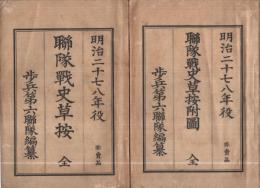 明治二十七八年役
聯隊戰史草按附圖 全
非賣品
步兵第六聯隊編纂
明治二十七八年役
聯隊戰史草按 全
非賣品
步兵第六聯隊編纂